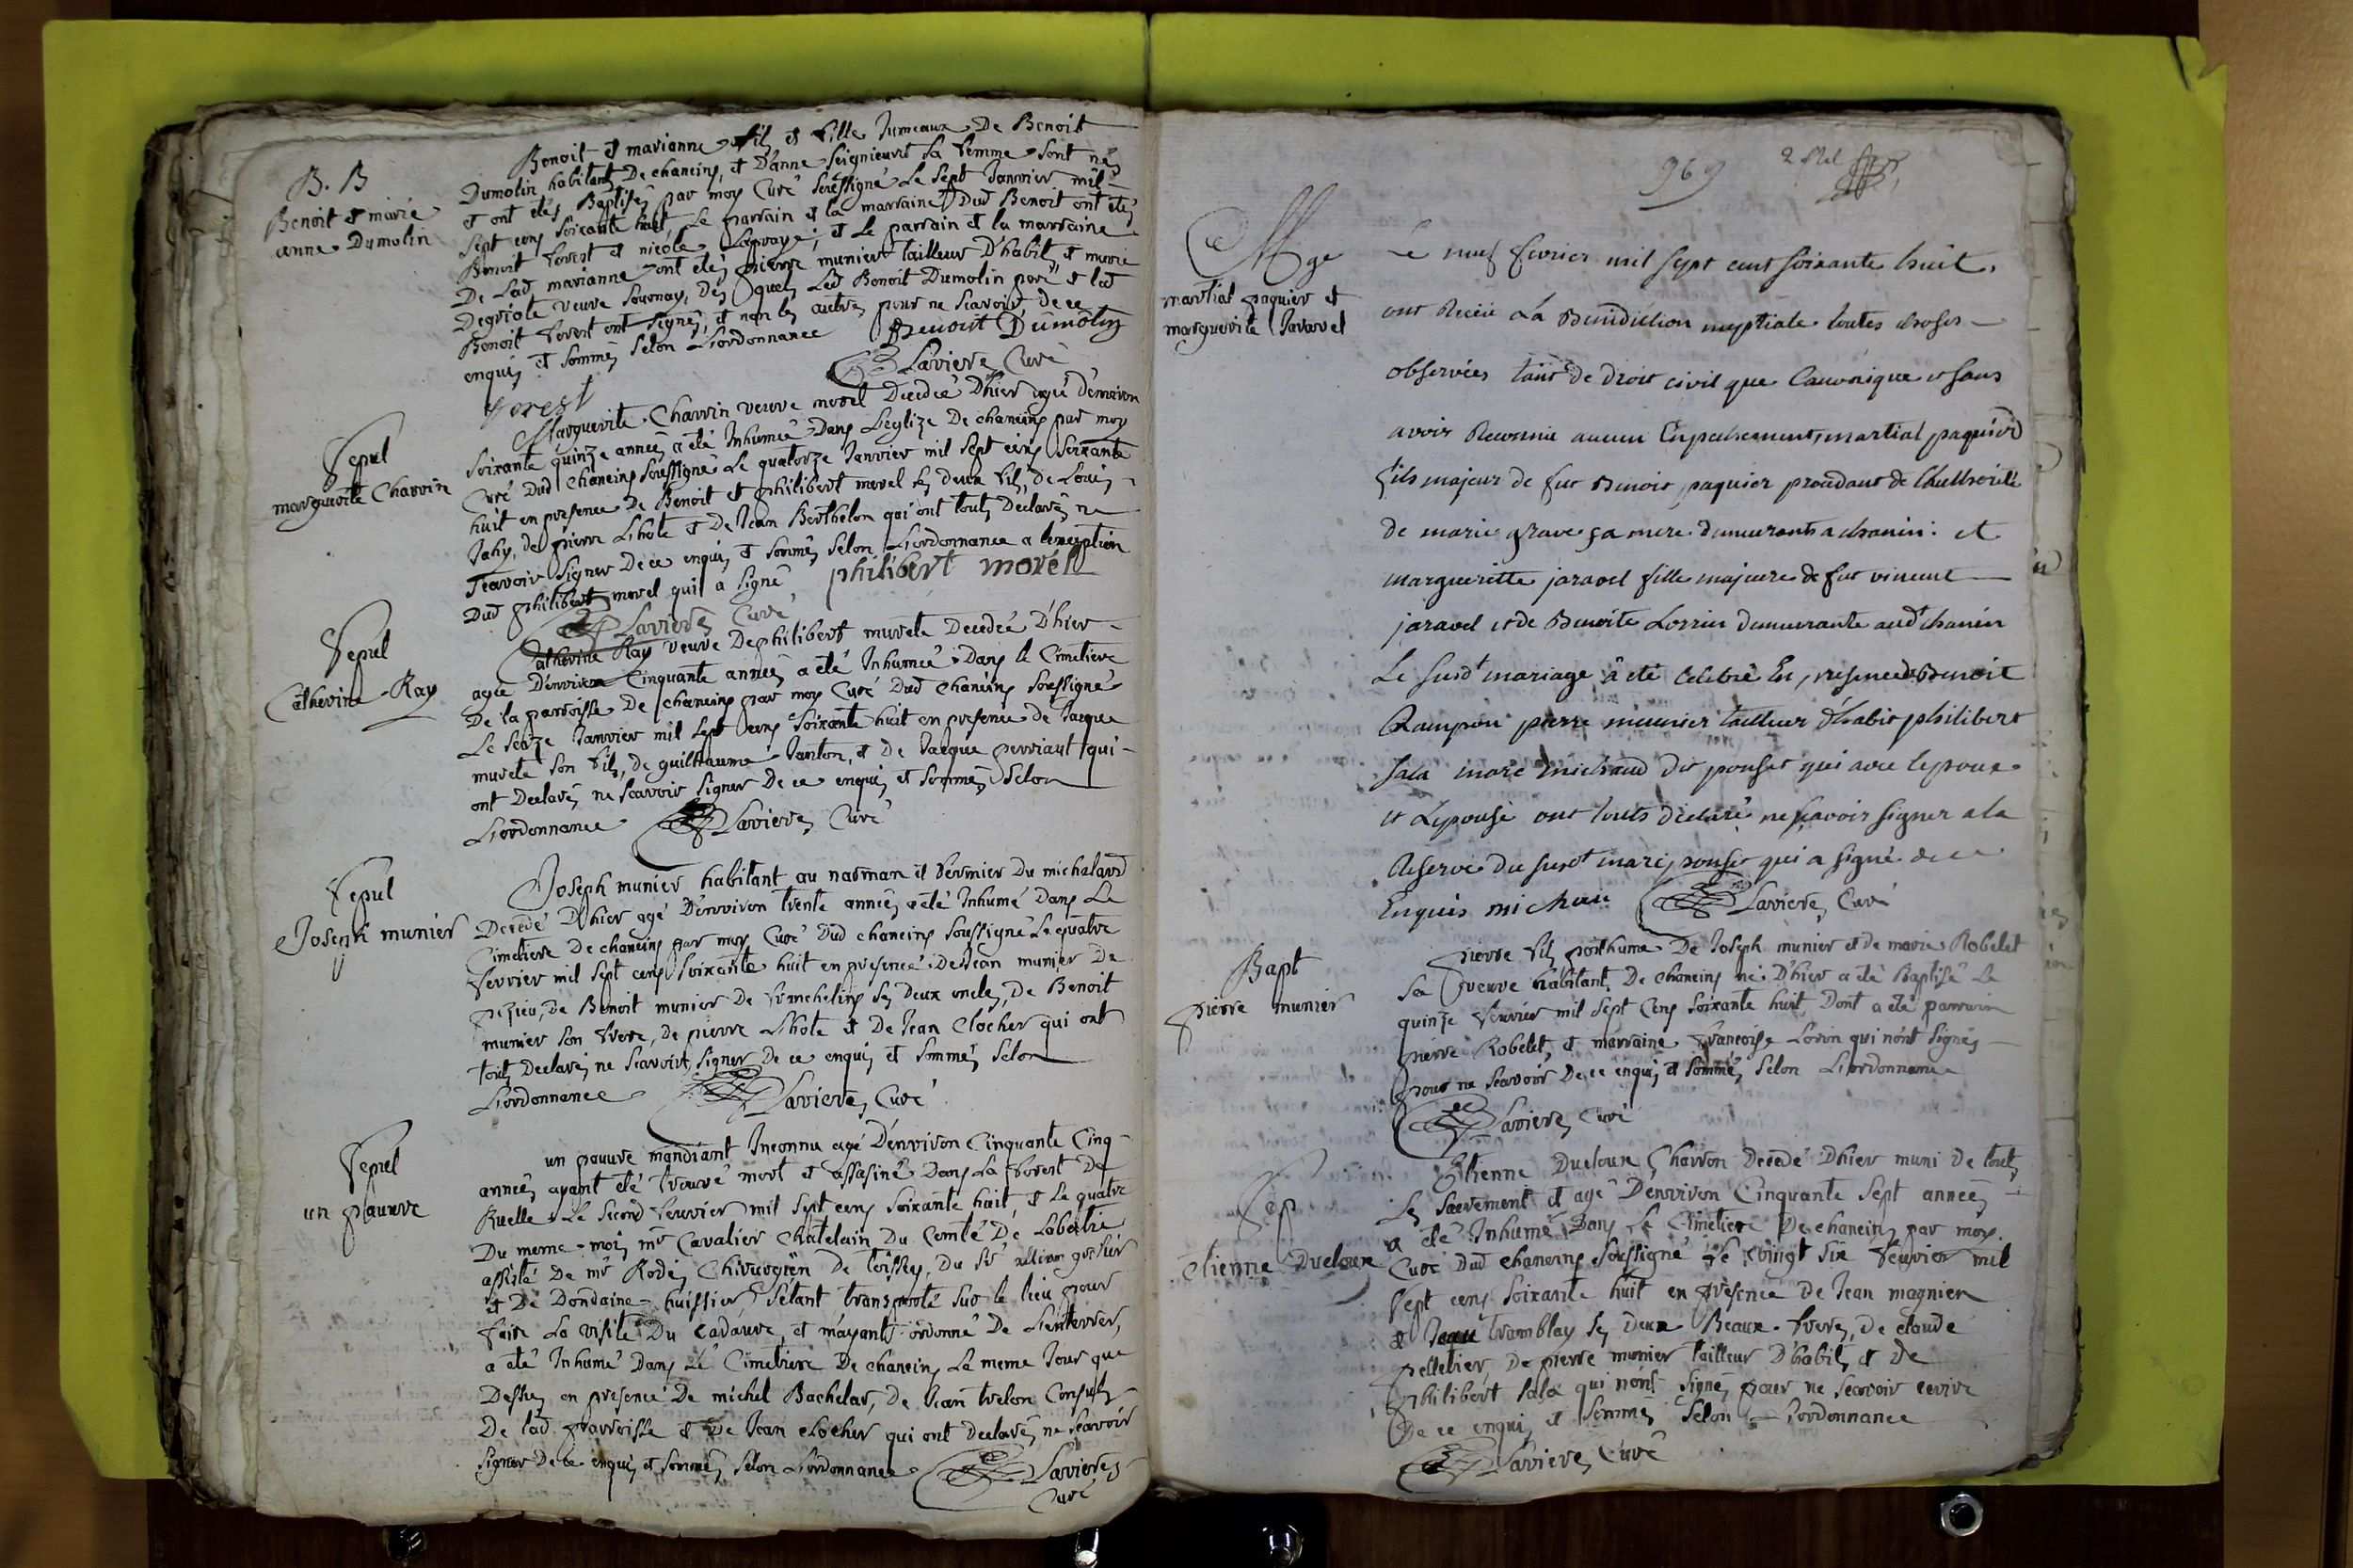 B. B
Benoit et marie
anne Dumolin
Benoit et marianne fils et fille Jumeaux De Benoit
Dumolin habitant De chaneins, et D'anne Seignieuret Sa femme sont nés
et ont étés Baptisés par moy Curé Soussigné Le Sept Janvier mil
Sept cens Soixante huit, Le parrain et la marraine Dud Benoit ont étés
Benoit forest et nicole Lapraye; et Le parrain et la marraine
De Lad marianne ont étés pierre munier tailleur D'habits et marie
Degriole veuve Journay, desquels Led Benoit Dumolin pere et led
Benoit forest ont Signés, et non les autres pour ne Scavoir, de ce
enquis et Sommés Selon L'ordonnance Benoit Dumolin
forest Laviere, Curé
Sepul
marguerite Charvin
Marguerite Charvin veuve morel Decedée D'hier agé d'environ
Soixante quinze années a été Inhumée Dans L'eglize De chaneins par moy
Curé Dud chaneins Soussigné Le quatorze Janvier mil Sept cens Soixante
huit en presence De Benoit et philibert morel Ses deux fils, de Louis
Jahy, de pierre Lhote et De Jean Berthelon qui ont touts Declarés ne
Scavoir Signer De ce enquis et Sommés Selon L'ordonnance a l'exception
Dud philibert morel qui a Signé philibert morel
Laviere, Curé
Sepul
Catherine Ray
Catherine Ray veuve De philibert murele Decedée D'hier
agée D'environ Cinquante années a été Inhumée Dans le Cimetiere
De la parroisse De chaneins par moy Curé Dud chaneins Soussigné
Le Seize Janvier mil Sept cens Soixante huit en presence de Jacque
murele Son fils, de guillaume Janton, et de Jacque perriaut qui
ont Declarés ne Scavoir Signer De ce enquis et Sommés Selon
L'ordonnance Laviere, Curé
Sepul
Joseph munier
Joseph munier habitant au narman et fermier Du michalard
Decedé D'hier agé D'environ trente années a été Inhumé Dans Le
Cimetiere De chaneins par moy Curé Dud chaneins Soussigné Le quatre
fevrier mil Sept cens Soixante huit en presence De Jean munier De
pezieu, De Benoit munier De francheleins Ses Deux oncles, De Benoit
munier Son frere, de pierre Lhote et De Jean Clocher qui ont
touts Declarés ne Scavoir Signer De ce enquis et Sommés Selon
L'ordonnance Laviere, Curé
Sepul
un pauvre
un pauvre mandiant Inconnu agé D'environ Cinquante Cinq
années ayant été trouvé mort et assasiné Dans La forest De
Ruelle Le Second fevrier mil Sept cens Soixante huit, et Le quatre
Du meme mois mr Cavalier Chatelain Du Comté De
assisté De mr Rodes Chirurgien De toissey, Du Sr greffier
et De Dondaine huissier S'étant transporté Sur le lieu pour
faire La visite Du Cadavre, et m'ayants ordonné De L'enterrer,
a été Inhumé Dans Le Cimetiere De chaneins Le meme Jour que
Dessus en presence De michel Bachelar, De Jean trelon Consuls
De lad parroisse et De Jean Clocher qui ont declarés ne Scavoir
Signer De ce enquis et Sommés Selon L'ordonnance Laviere,
Curé
969
Mge
martial paquier et
marguerite Javarel
Le neuf fevrier mil sept cent soixante huit,
ont Recüe La Benediction nuptiale toutes choses
observées tant de droit civil que Canonique et sans
avoir Reconnu aucun Empechement, martial paquier
fils majeur de fut Benoit paquier procedant de l'authorité
de marie grave sa mere demeurants a chanin: et
marguerite jaravel fille majeure de fut vincent
jaravel et de Benoite Lorrin demeurante aud chanin
Le susdt mariage â eté Celebré En presence de Benoit
Rampon pierre meunier tailleur d'habit philibert
Sala marc michaud dit pouset qui avec lepoux
et Lepouse ont touts declaré ne sçavoir signer a la
Reserve du susdt marc pouset qui a signé de ce
Enquis michau Laviere, Curé
Bapt
pierre munier
pierre fils posthume De Joseph munier et de marie Robelet
Sa veuve habitant De chaneins né D'hier a été Baptisé Le
quinze fevrier mil Sept Cens Soixante huit, Dont a été parrain
pierre Robelet, et marraine françoise Lorin qui n'ont Signés
pour ne Scavoir De ce enquis et Sommés Selon L'ordonnance
Laviere, Curé
Sep
etienne Ducloux
Etienne Ducloux Charron Decedé D'hier muni De touts
Les Sacrement et agé D'environ Cinquante Sept années
a été Inhumé Dans Le Cimetiere De chaneins par moy
Curé Dud chaneins Soussigné Le vingt Six fevrier mil
Sept cens Soixante huit en présence De Jean magnien
et Jaque tramblay Ses deux Beaux freres, De claude
pelletier De pierre munier tailleur D'habits et De
philibert Sala qui n'ont Signés pour ne Scavoir ecrire
De ce enquis et Sommés Selon L'ordonnance
Laviere, Curé